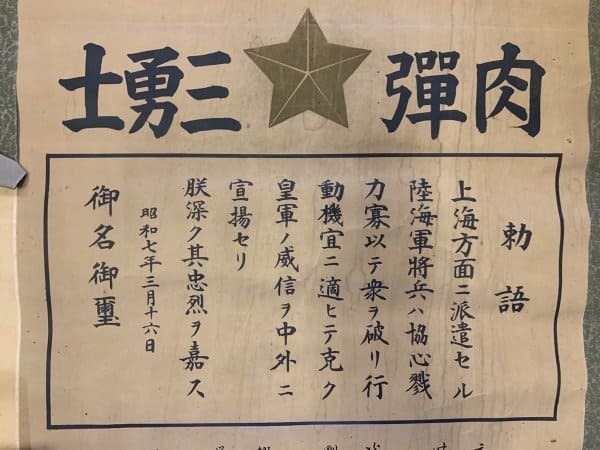 肉彈三勇士
勅語
上海方面ニ派遣セル
陸海軍將兵ハ協心戮
力寡以テ衆ヲ破リ行
動機宜ニ適ヒテ克ク
皇軍ノ威信ヲ中外ニ
宣揚セリ
朕深ク其忠烈ヲ嘉ス
昭和七年三月十六日
御名御璽